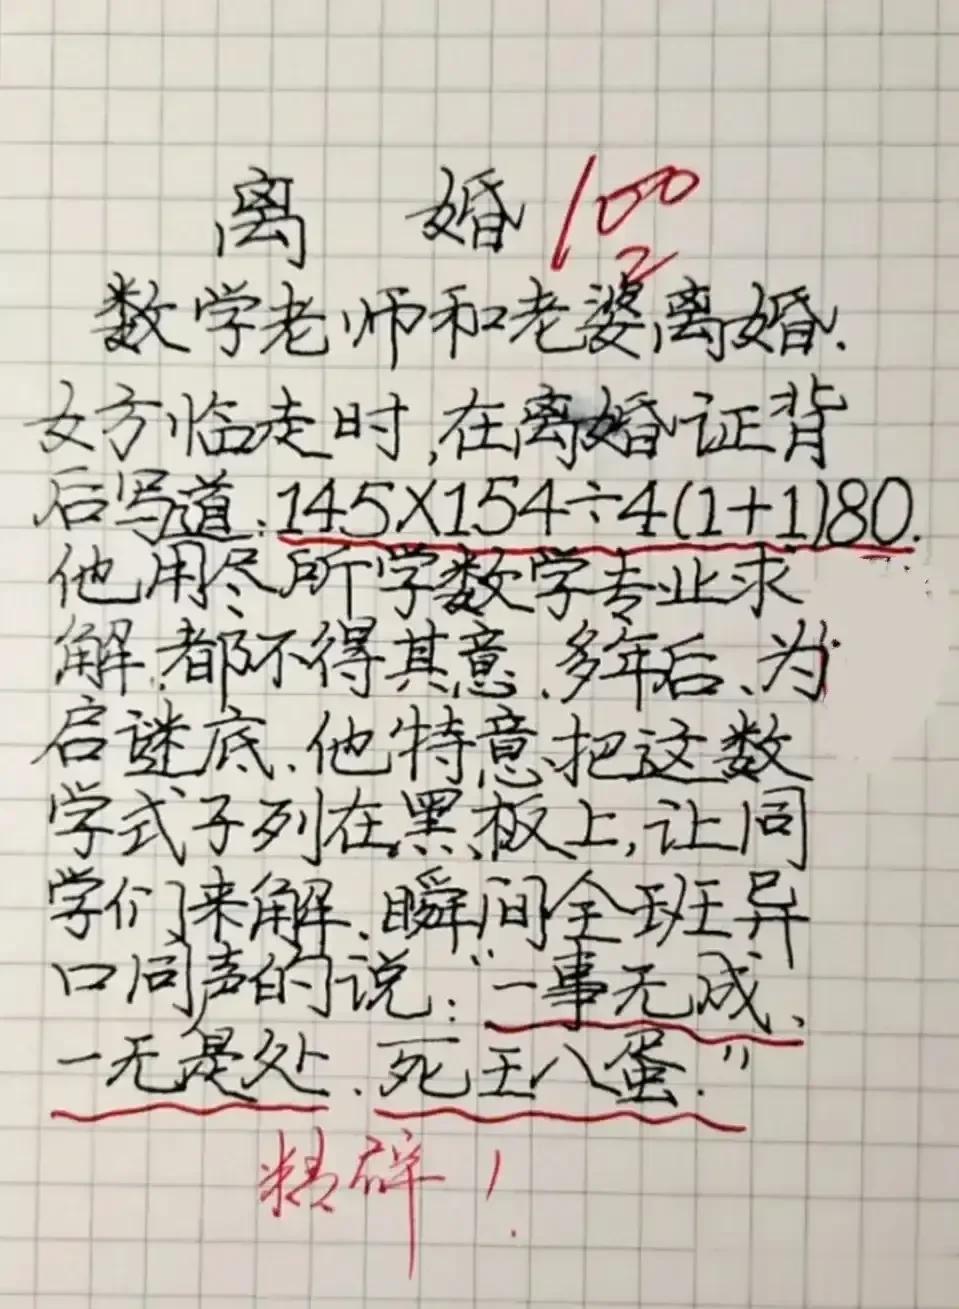 离 婚 100
数学老师和老婆离婚.
女方临走时,在离婚证背
后写道:145X154÷4(1+1)80.
他用尽所学数学专业求
解.都不得其意.多年后、为
启谜底.他特意把这数
学式子列在黑板上,让同
学们来解.瞬间全班异
口同声的说:“一事无成、
一无是处.死王八蛋.”
精辟!